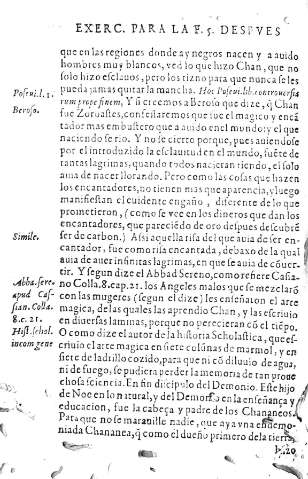 EXERC. PARA LA F. 5. DESPVES
que en las regiones donde ay negros nacen y a auido
hombres muy blancos, ved lo que hizo Chan, que no
solo hizo esclauos, pero los tizno para que nunca se les
pueda jamas quitar la mancha. Hoc Poseui. lib. controuersia
Poseui. l. 1.
rum prope finem, Y si creemos a Beroso que dize, q̃ Chan
Beroso.
fue Zoroastes, confessaremos que fue el magico y encã
tador mas embustero que a auido en el mundo y el que
naciendo se rio. Y no se cierto porque, pues auiendose
por el introduzido la esclauitud en el mundo, fuẽte de
tantas lagrimas, quando todos nacieran riendo, el solo
auia de nacer llorando. Pero como las cosas que hazen
los encantadores, no tienen mas que aparencia, y luego
manifiestan el euidente engaño, diferente de lo que
prometieron, (como se vee en los dineros que dan los
encantadores, que pareciẽdo de oro despues descubrẽ
ser de carbon.) Assi aquella risa del que auia de ser en-
Simile.
cantador, fue como risa encantada, debaxo de la qual
auia de auer infinitas lagrimas, en que le auia de cõuer-
tir. Y segun dize el Abbad Sereno, como refiere Casia-
Abba. sere.
no Colla. 8. cap. 21. los Angeles malos que se mezclarõ
apud Cas-
con las mugeres (segun el dize) les enseñaron el arte
sian. Colla.
magica, de las quales las aprendio Chan, y las escriuio
8. c. 21.
en diuersas laminas, porque no perecieran cõ el tiẽpo.
Hist. schol.
O como dize el autor de la historia Scholastica, que es-
in com gene
criuio el arte magica en siete colunas de marmol, y en
siete de ladrillo cozido, para que ni cõ diluuio de agua,
ni de fuego, se pudiera perder la memoria de tan proue
chosa sciencia. En fin discipulo del Demonio. Este hijo
de Noe en lo natural, y del Demonio en la enseñança y
educacion, fue la cabeça y padre de los Chananeos.
Para que no se marauille nadie, que aya vna endemo-
niada Chananea, q̃ como el dueño primero de la tierra